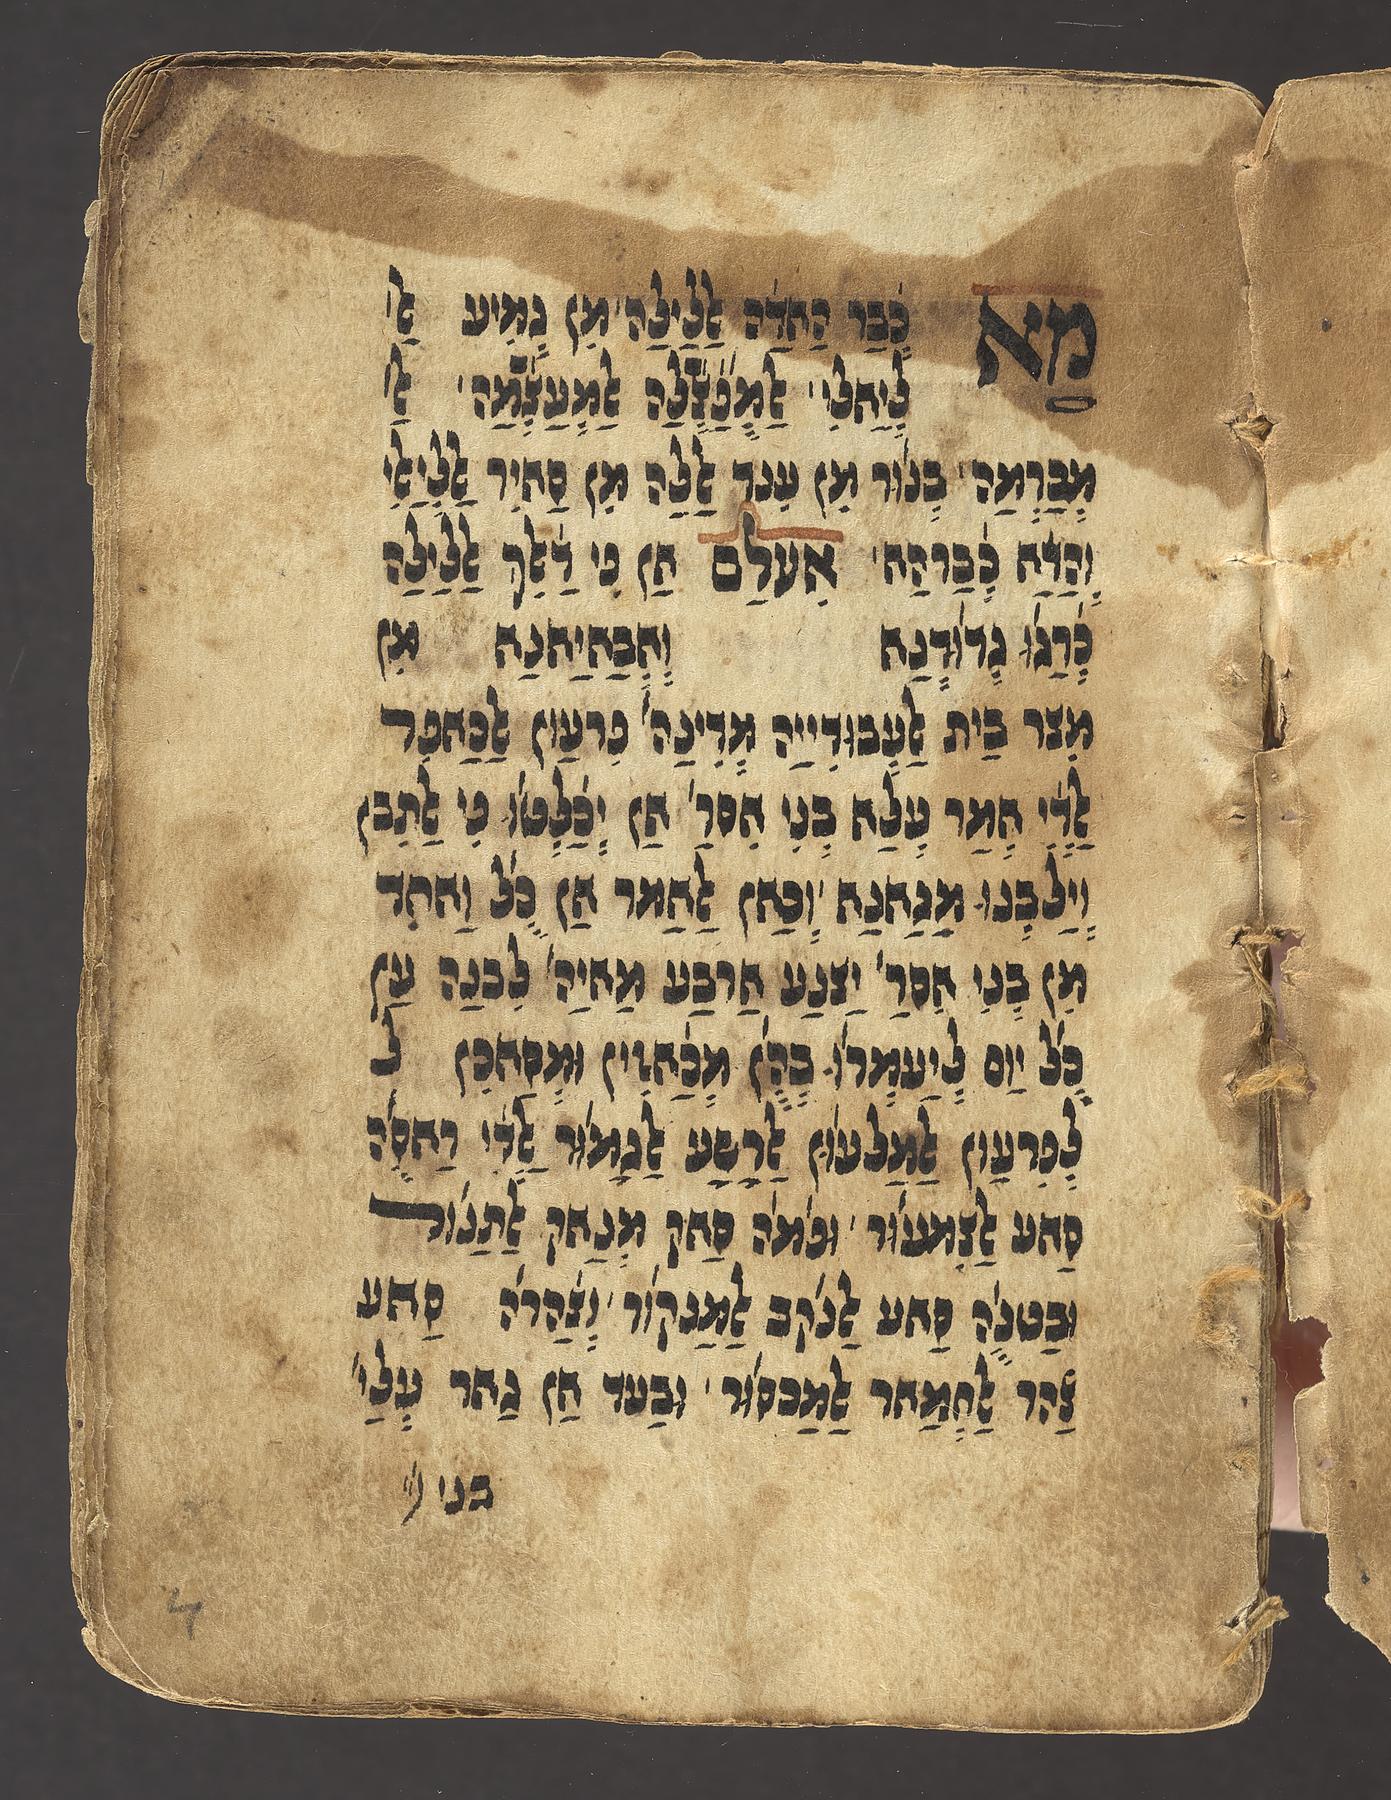 מַא כָֿבַר הַאדַֿה אַלְלַילַה מִן גָמִיע אַל
לַיַאלִי אַלְמֻפַצָּלַה אַלְמֻעַצָּמַה אַל
מֻבַרְמַה בְנוּר מִן עִנד אַללַה מִן סַאיִר אַללַיַאלִי
וְהַדַֿא כָֿבַרהַא אִעלַם אַן פִי דַֿלִך אַללַילַה
כָֿרַגוּ גְדוּדְנַא וְאַבַּאיַאנַא מִן
מִצר בַית אַלעֻבוּדִייַה מְדִינַה פִרעַון אַלכַּאפִר
אַלְדִֿי אְמַר עְלַא בְנִי אִסרַ׳ אַן יְכַֿלְטוּ פִי אַלתִבן
וְיַלבְנוּ מַגַאנַא וְכַאן אַלאַמר אַן כָל וַאחִד
מִן בְנִי אִסרַ׳ יַצנַע אַרבַע מַאיַה לִבנַה עַן
כָל יַום לְיַעמְרוּ בְהִן מְכַֿאזִין וּמְסַאכִן ל
לְפִרעַון אַלמַלעוּן אַלרַשַע אַלגמוּר אַלְדִֿי רַאסֻה
סַאע אַלצִמעוּר וּפֻמֹה סַאק מִנַאק אַלתַנוּר
וּבַטנֻה סַאע אַלנֻקב אַלמַנקוּר וְצַֿהרֹה סַאע
צַֿהר אַלְאְמַאר אַלמַכסוּר וּבַעד אַן גַאר עְלַי
בני י׳
4